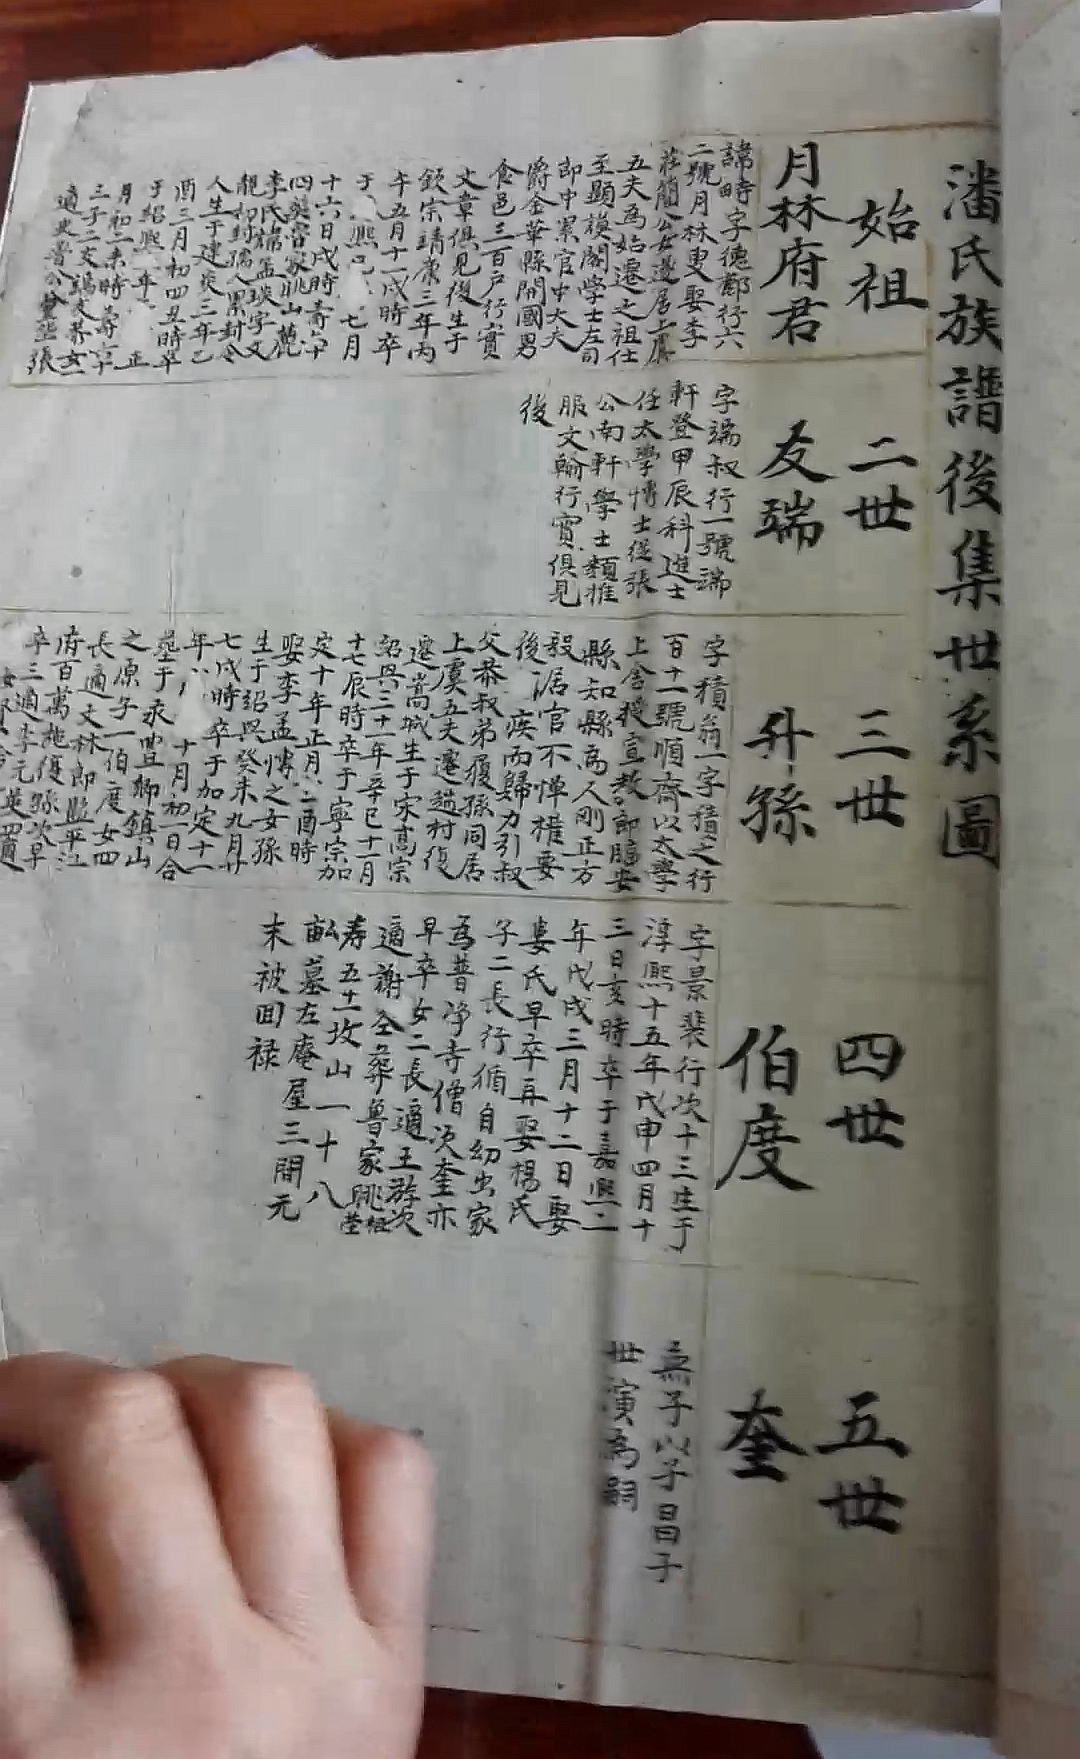 潘氏族譜後集世系圖
始祖
月林府君
諱時字德鄜行六
二號月林叟娶李
莊簡公女遂居上虞
五夫為始遷之祖仕
至顯謨閣學士左司
郎中累官中大夫
爵金華縣開國男
食邑三百戶行實
文章俱見後生于
欽宗靖康三年丙
午五月十一戌時卒
于 熙 七月
十六日戌時壽六十
四
李氏
人生于建炎三年己
酉三月初四丑時卒
于紹熙 年 正
月初一未時壽六十
三子二
適
二世
友瑞
字端叔行一號端
軒登甲辰科進士
任太學博士從張
公南軒學士類推
服文翰行實俱見
後
三世
升孫
字積翁一字積之行
百十一號順齋以太學
上舍授宣教郎臨安
縣知縣為人剛正方
毅居官不憚權要
後 疾而歸力引叔
父恭叔弟履孫同居
上虞五夫遷趙村復
遷嵩城生于宋高宗
紹興三十一年辛巳十一月
十七辰時卒于寧宗加
定十年正月二酉時
娶李孟博之女孫
生于紹興癸未九月廿
七戌時卒于加定十一
年 十月初一日合
葬于 永豐鄉鎮山
之原子一伯度女四
長適文林郎監平江
府百萬施復孫次早
卒三適李元
四世
伯度
字景裴行次十三生于
淳熙十五年戊申四月十
三日亥時卒于嘉熙二
年戊戌三月十二日娶
婁氏早卒再娶楊氏
子二長行循自幼出家
為普淨寺僧次奎亦
早卒女二長適王游次
適謝全葬曾家眺祖塋
寿五土坟山一十八
畝墓左庵屋三間元
末被回禄
五世
奎
無子以子昌子
世演為嗣